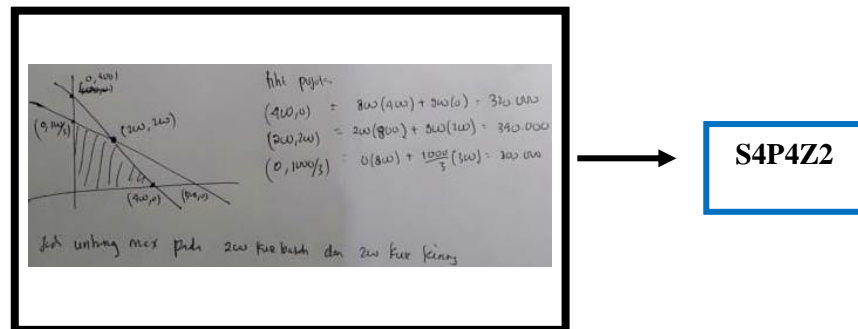 0,400)
(0, 1000/3)
(200, 200)
(400,0)
titik pojok
(400,0) = 800(400) + 900(0) = 320.000
(200,200) = 200(800) + 900(200) = 340.000
(0, 1000/3) = 0(800) + 1000/3 (900) = 300.000
Jadi untung max pada 200 kue basah dan 200 kue kering
S4P4Z2